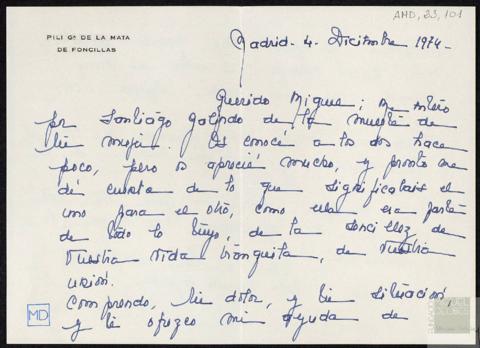 AHD, 23, 101
PILI Gª DE LA MATA
DE FONCILLAS
Madrid - 4 - Diciembre 1974 -
Querido Miguel; me entero
por Santiago Galindo de la muerte de
tu mujer. Os conocí a los dos hace
poco, pero os aprecié mucho, y pronto me
dí cuenta de lo que significabais el
uno para el otro, como ella era parte
de todo lo tuyo, de la sencillez de
vuestra vida tranquila, de vuestra
unión.
Comprendo, tu dolor, y tu situación
y te ofrezco mi ayuda de
MD